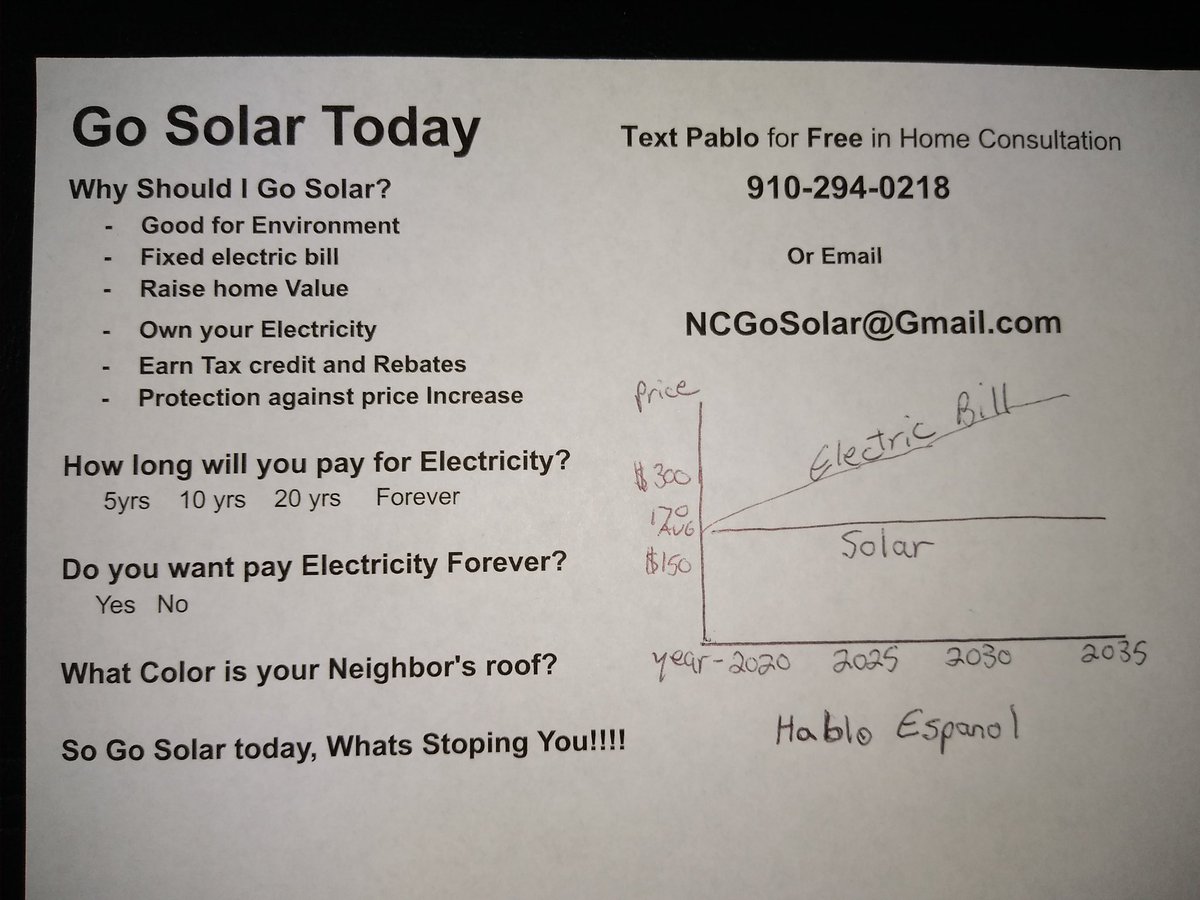 Go Solar Today
Why Should I Go Solar?
- Good for Environment
- Fixed electric bill
- Raise home Value
- Own your Electricity
- Earn Tax credit and Rebates
- Protection against price Increase
How long will you pay for Electricity?
5yrs 10 yrs 20 yrs Forever
Do you want pay Electricity Forever?
Yes No
What Color is your Neighbor's roof?
So Go Solar today, Whats Stoping You!!!!
Text Pablo for Free in Home Consultation
910-294-0218
Or Email
NCGoSolar@Gmail.com
Price
Electric Bill
$300
170
AUG
$150
Solar
year - 2020 2025 2030 2035
Hablo Espanol